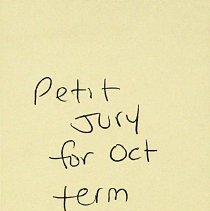 Petit
Jury
for Oct
term